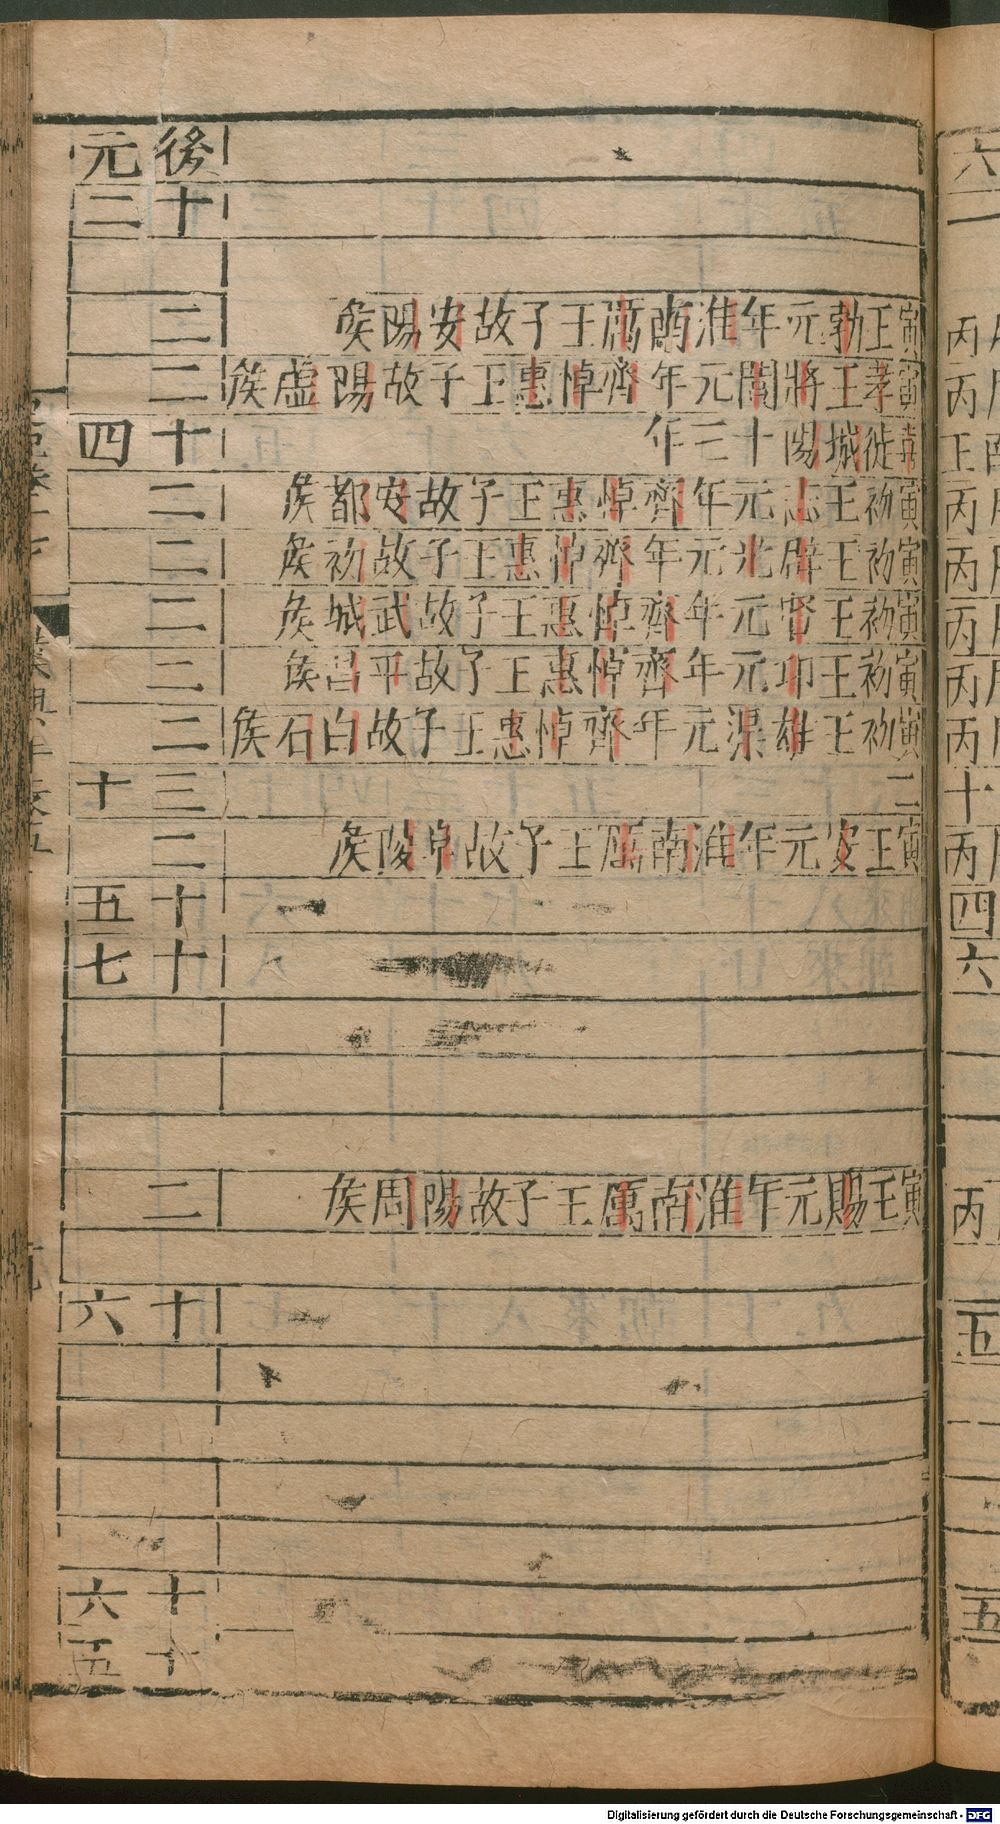 後元
十二
寅王勃元年淮南厲王子故安陽侯 二
寅孝王將閭元年齊悼惠王子故陽虛侯 二
徙城陽十三年 十四
寅初王志元年齊悼惠王子故安都侯 二
寅初王辟光元年齊悼惠王子故初侯 二
寅初王賢元年齊悼惠王子故武城侯 二
寅初王卬元年齊悼惠王子故平昌侯 二
寅初王雄渠元年齊悼惠王子故白石侯 二
二 三十
寅王安元年淮南厲王子故阜陵侯 二
十五
十七
寅王賜元年淮南厲王子故陽周侯 二
十六
十六
十五
Digitalisierung gefördert durch die Deutsche Forschungsgemeinschaft - DFG